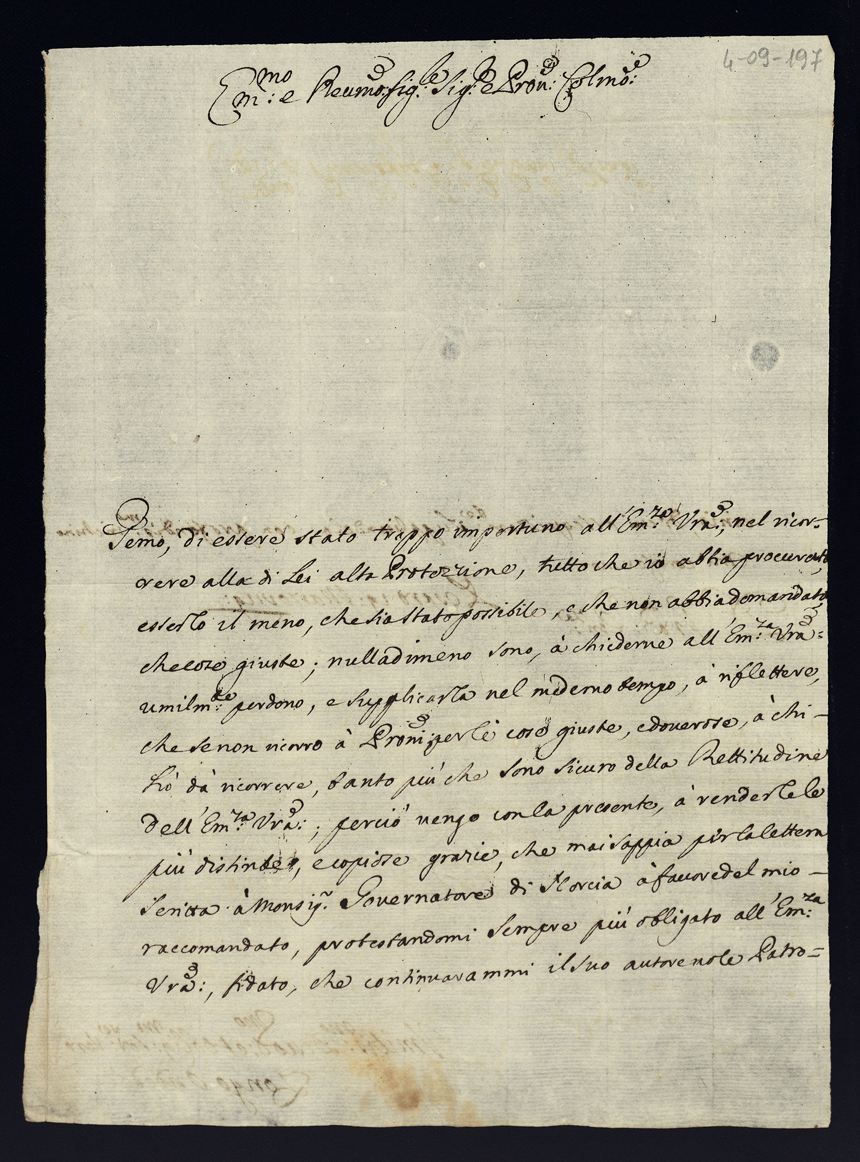 4-09-197
Em:mo e Reumo: Sig:re Sig:re e Pron: Colmo:
Temo, di essere stato troppo importuno all'Em:za Vra:, nel ricor=
rere alla di Lei alta Protezzione, tutto che io abbia procurato,
esserlo il meno, che sia stato possibile, e che non abbia domandato,
che cose giuste; nulladimeno sono, à chiederne all'Em:za Vra:
umilm:te perdono, e supplicarla nel medemo tempo, à riflettere,
che se non ricorro à Proni, per le cose giuste, e doverose, à chi –
hò dà ricorrere, tanto più che sono sicuro della Rettitudine
dell'Em:za Vra:, perciò vengo con la presente, à renderle le
più distinte, e copiose grazie, che mai sappia per la lettera
scritta à Monsig:r Governatore di Norcia à favore del mio –
raccomandato, protestandomi sempre più obligato all'Em:za
Vra:, fidato, che continuarammi il suo autorevole Patro=